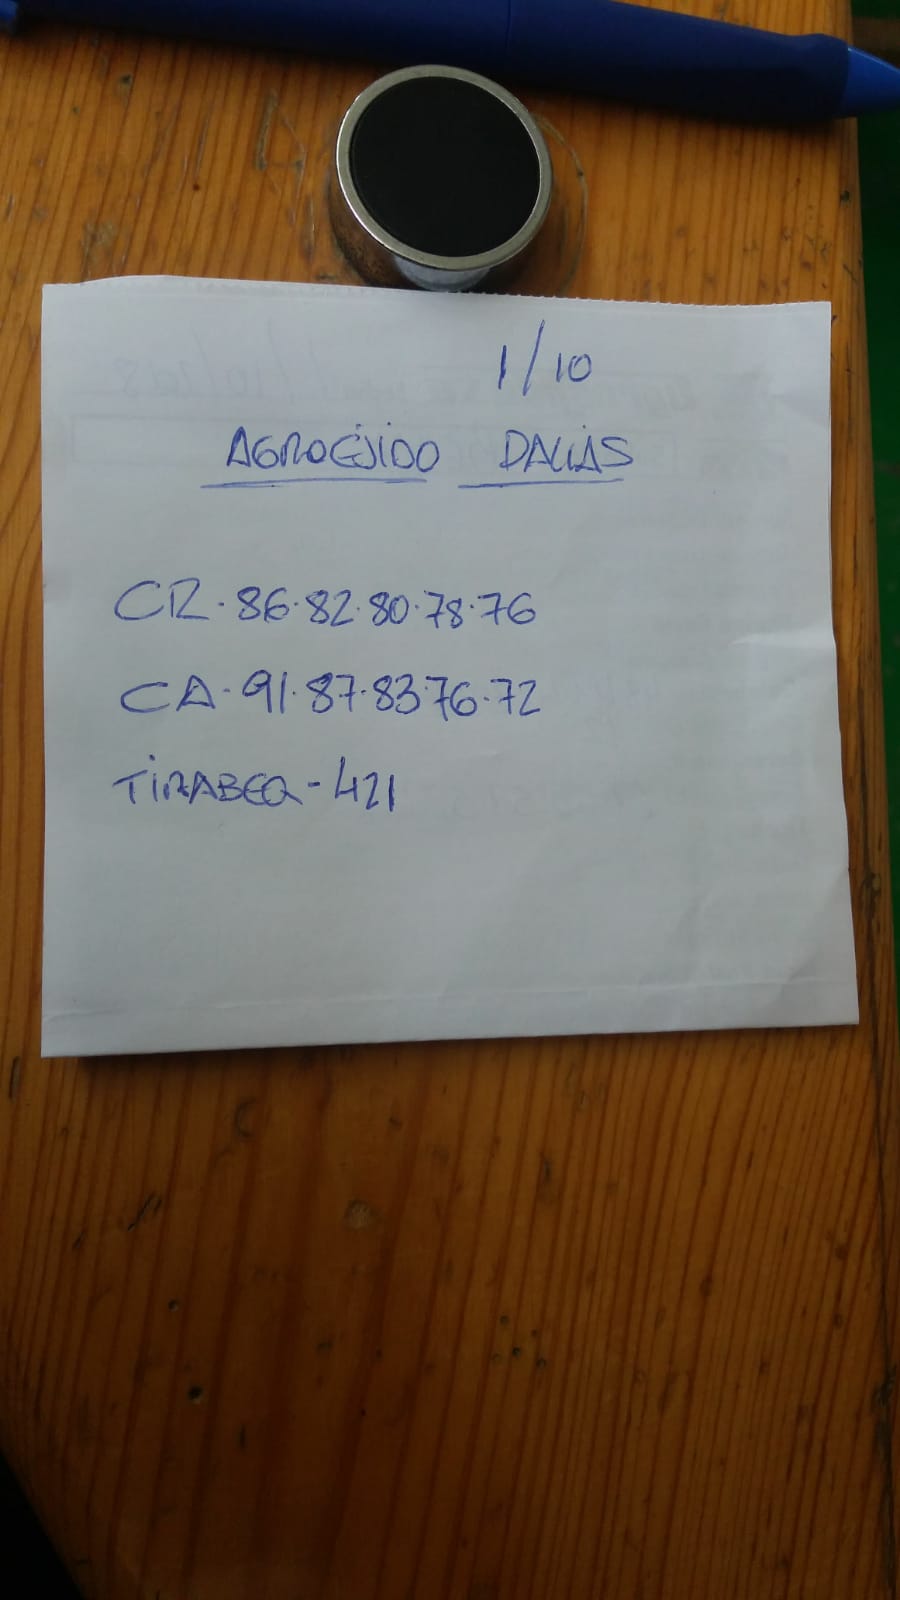 1/10
AGROEJIDO DALIAS
CR·86·82·80·78·76
CA·91·87·83·76·72
TIRABEQ-421